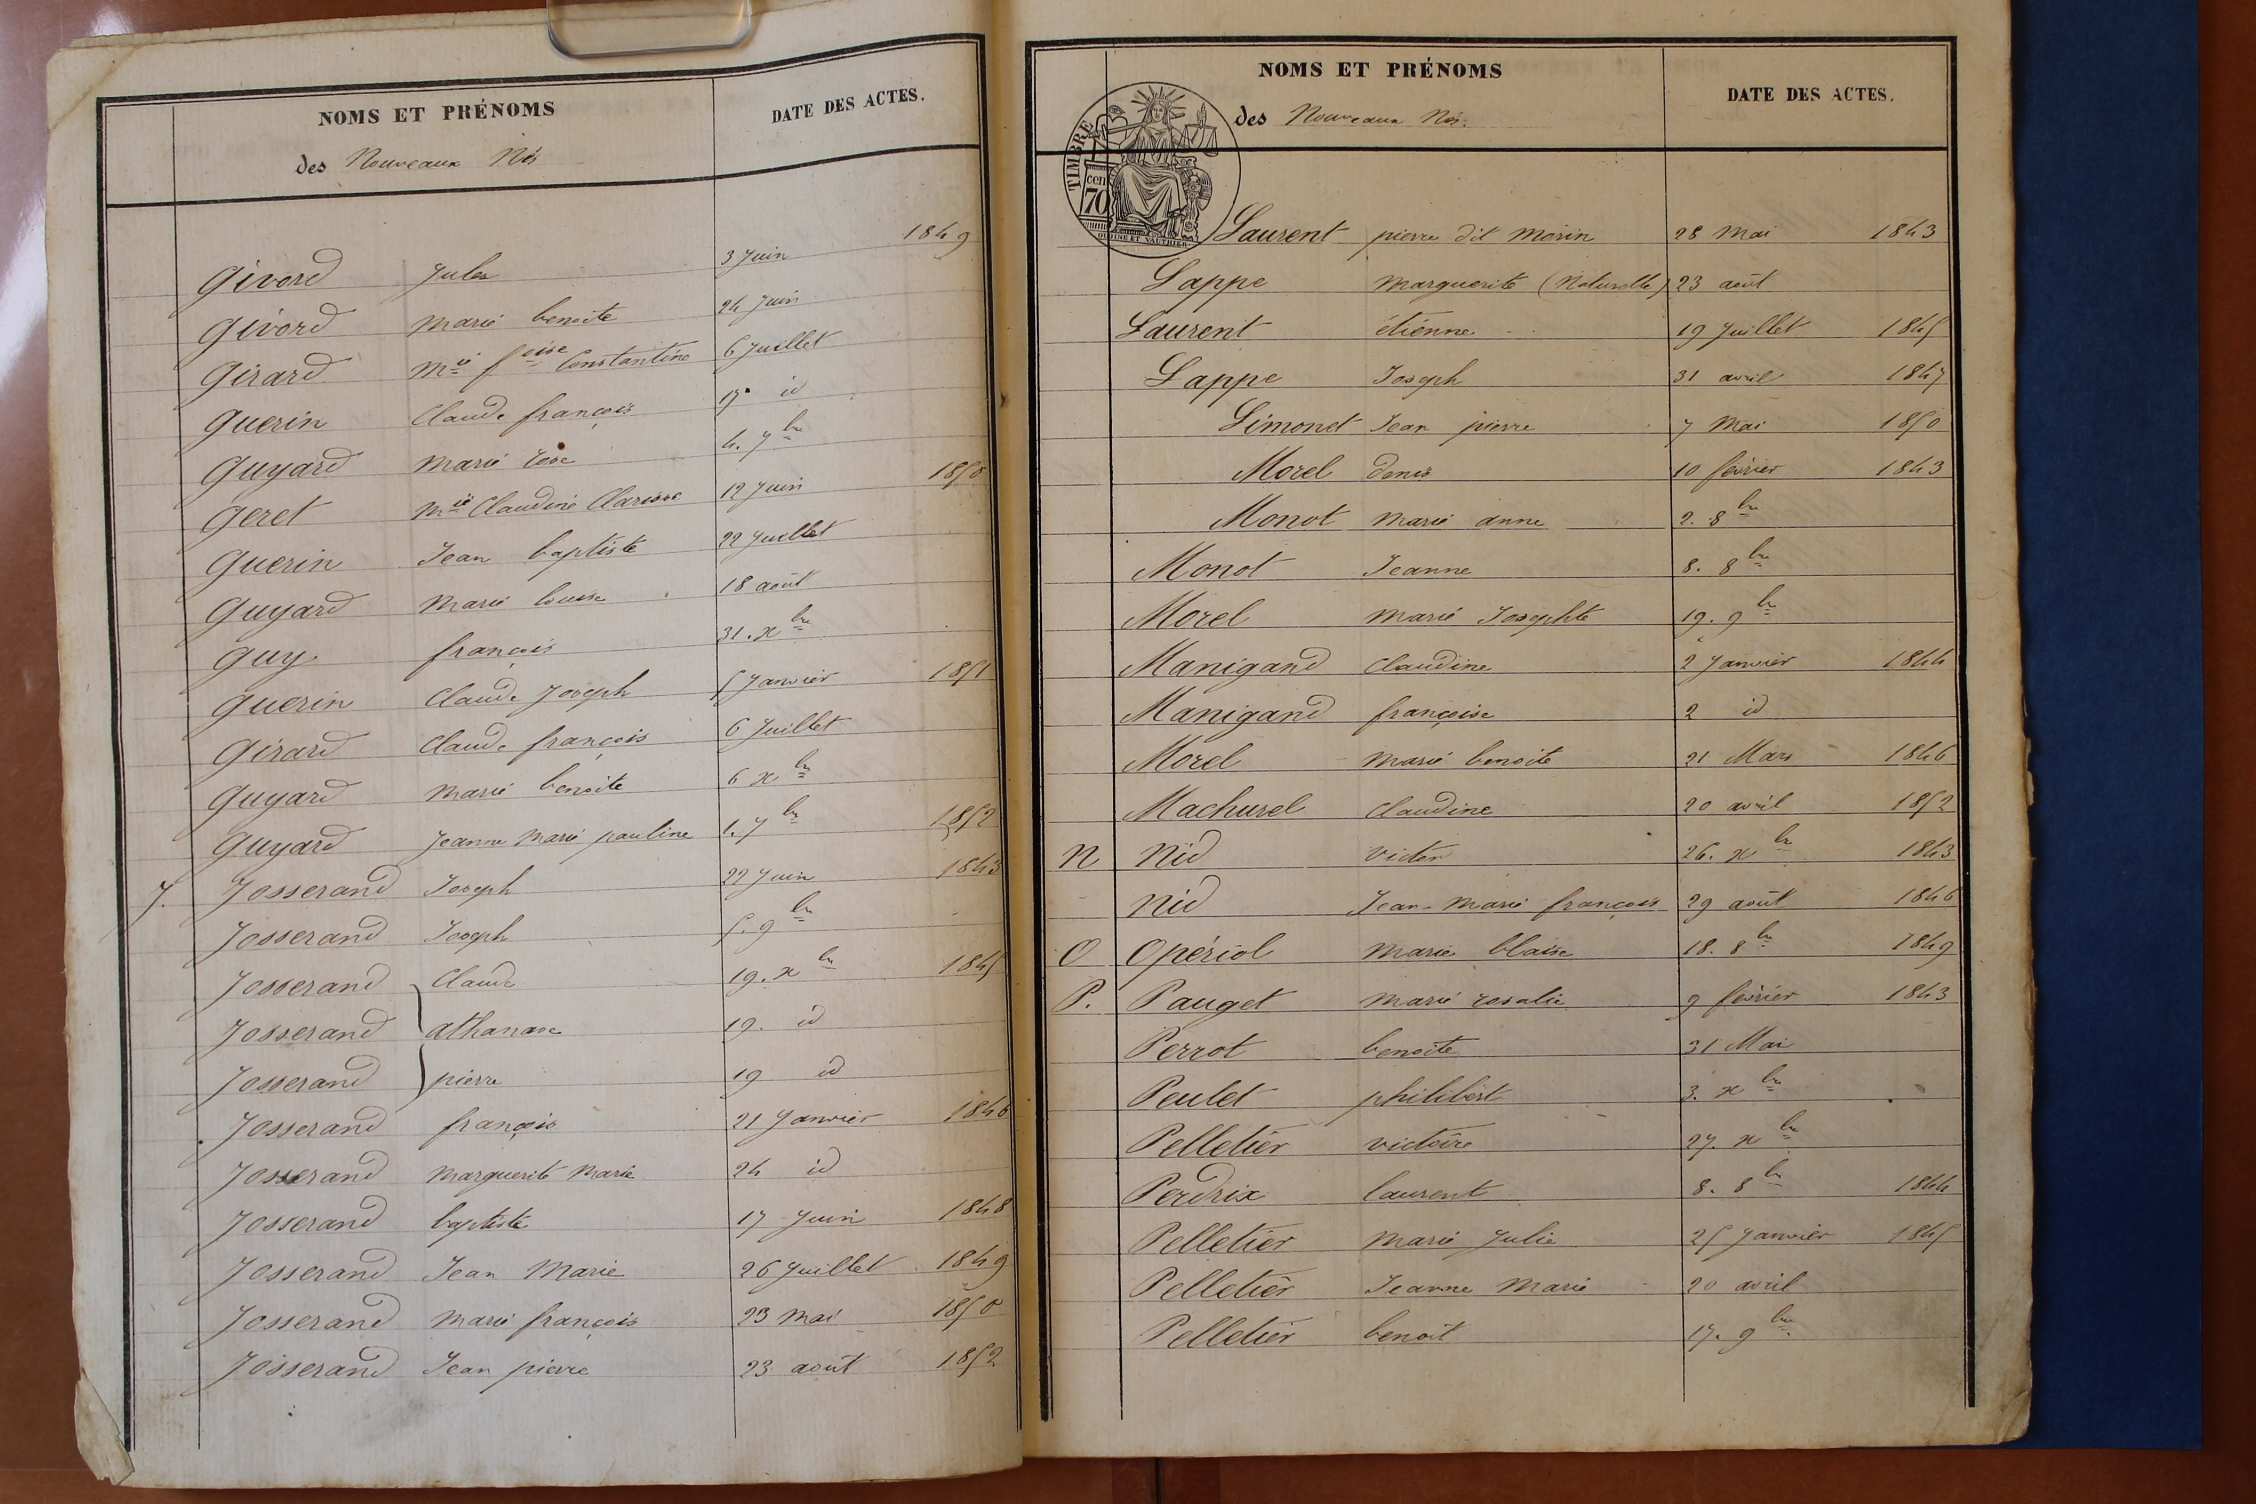 NOMS ET PRÉNOMS
DATE DES ACTES.
des Nouveaux Nés
Givord Jules 3 Juin 1849
Givord Marie benoite 24 Juin
Girard Mie foise Constantine 6 Juillet
Guerin Claude françois 17 id
Guyard Marie rose 4. 7bre
Geret Mie Claudine Clarisse 12 Juin 1850
Guerin Jean baptiste 22 Juillet
Guyard Marie louise 18 août
Guy françois 31. xbre
Guerin Claude Joseph 5 Janvier 1851
Girard Claude françois 6 Juillet
Guyard Marie benoite 6 xbre
Guyard Jeanne Marie pauline 1. 7bre 1852
J. Josserand Joseph 22 Juin 1843
Josserand Joseph 5. 9bre
Josserand Claude 19. xbre 1845
Josserand athanase 19. id
Josserand pierre 19 id
Josserand françois 21 Janvier 1846
Josserand Marguerite Marie 24 id
Josserand baptiste 17 Juin 1848
Josserand Jean Marie 26 Juillet 1849
Josserand Marie françois 23 mai 1850
Josserand Jean pierre 23 août 1852
NOMS ET PRÉNOMS
DATE DES ACTES.
des Nouveaux Nés.
TIMBRE
cen
70
OUDINÉ ET VAUTHIER
Laurent pierre dit morin 28 Mai 1843
Lappe Marguerite (Naturelle) 23 août
Laurent étienne 19 Juillet 1845
Lappe Joseph 31 avril 1847
Limonet Jean pierre 7 Mai 1850
Morel denis 10 février 1843
Monot Marie anne 2. 8bre
Monot Jeanne 8. 8bre
Morel Marie Josephte 19. 9bre
Manigand Claudine 2 Janvier 1844
Manigand françoise 2 id
Morel Marie benoite 21 Mars 1846
Machurel Claudine 20 avril 1852
N Nid victor 26. xbre 1843
Nid Jean-Marie françois 29 août 1846
O Opériol Marie blaise 18. 8bre 1849
P. Pauget Marie rosalie 9 février 1843
Perrot benoite 31 Mai
Peulet philibert 3. xbre
Pelletier victoire 27. xbre
Perdrix laurent 8. 8bre 1844
Pelletier Marie Julie 25 Janvier 1845
Pelletier Jeanne Marie 20 avril
Pelletier benoit 17. 9bre